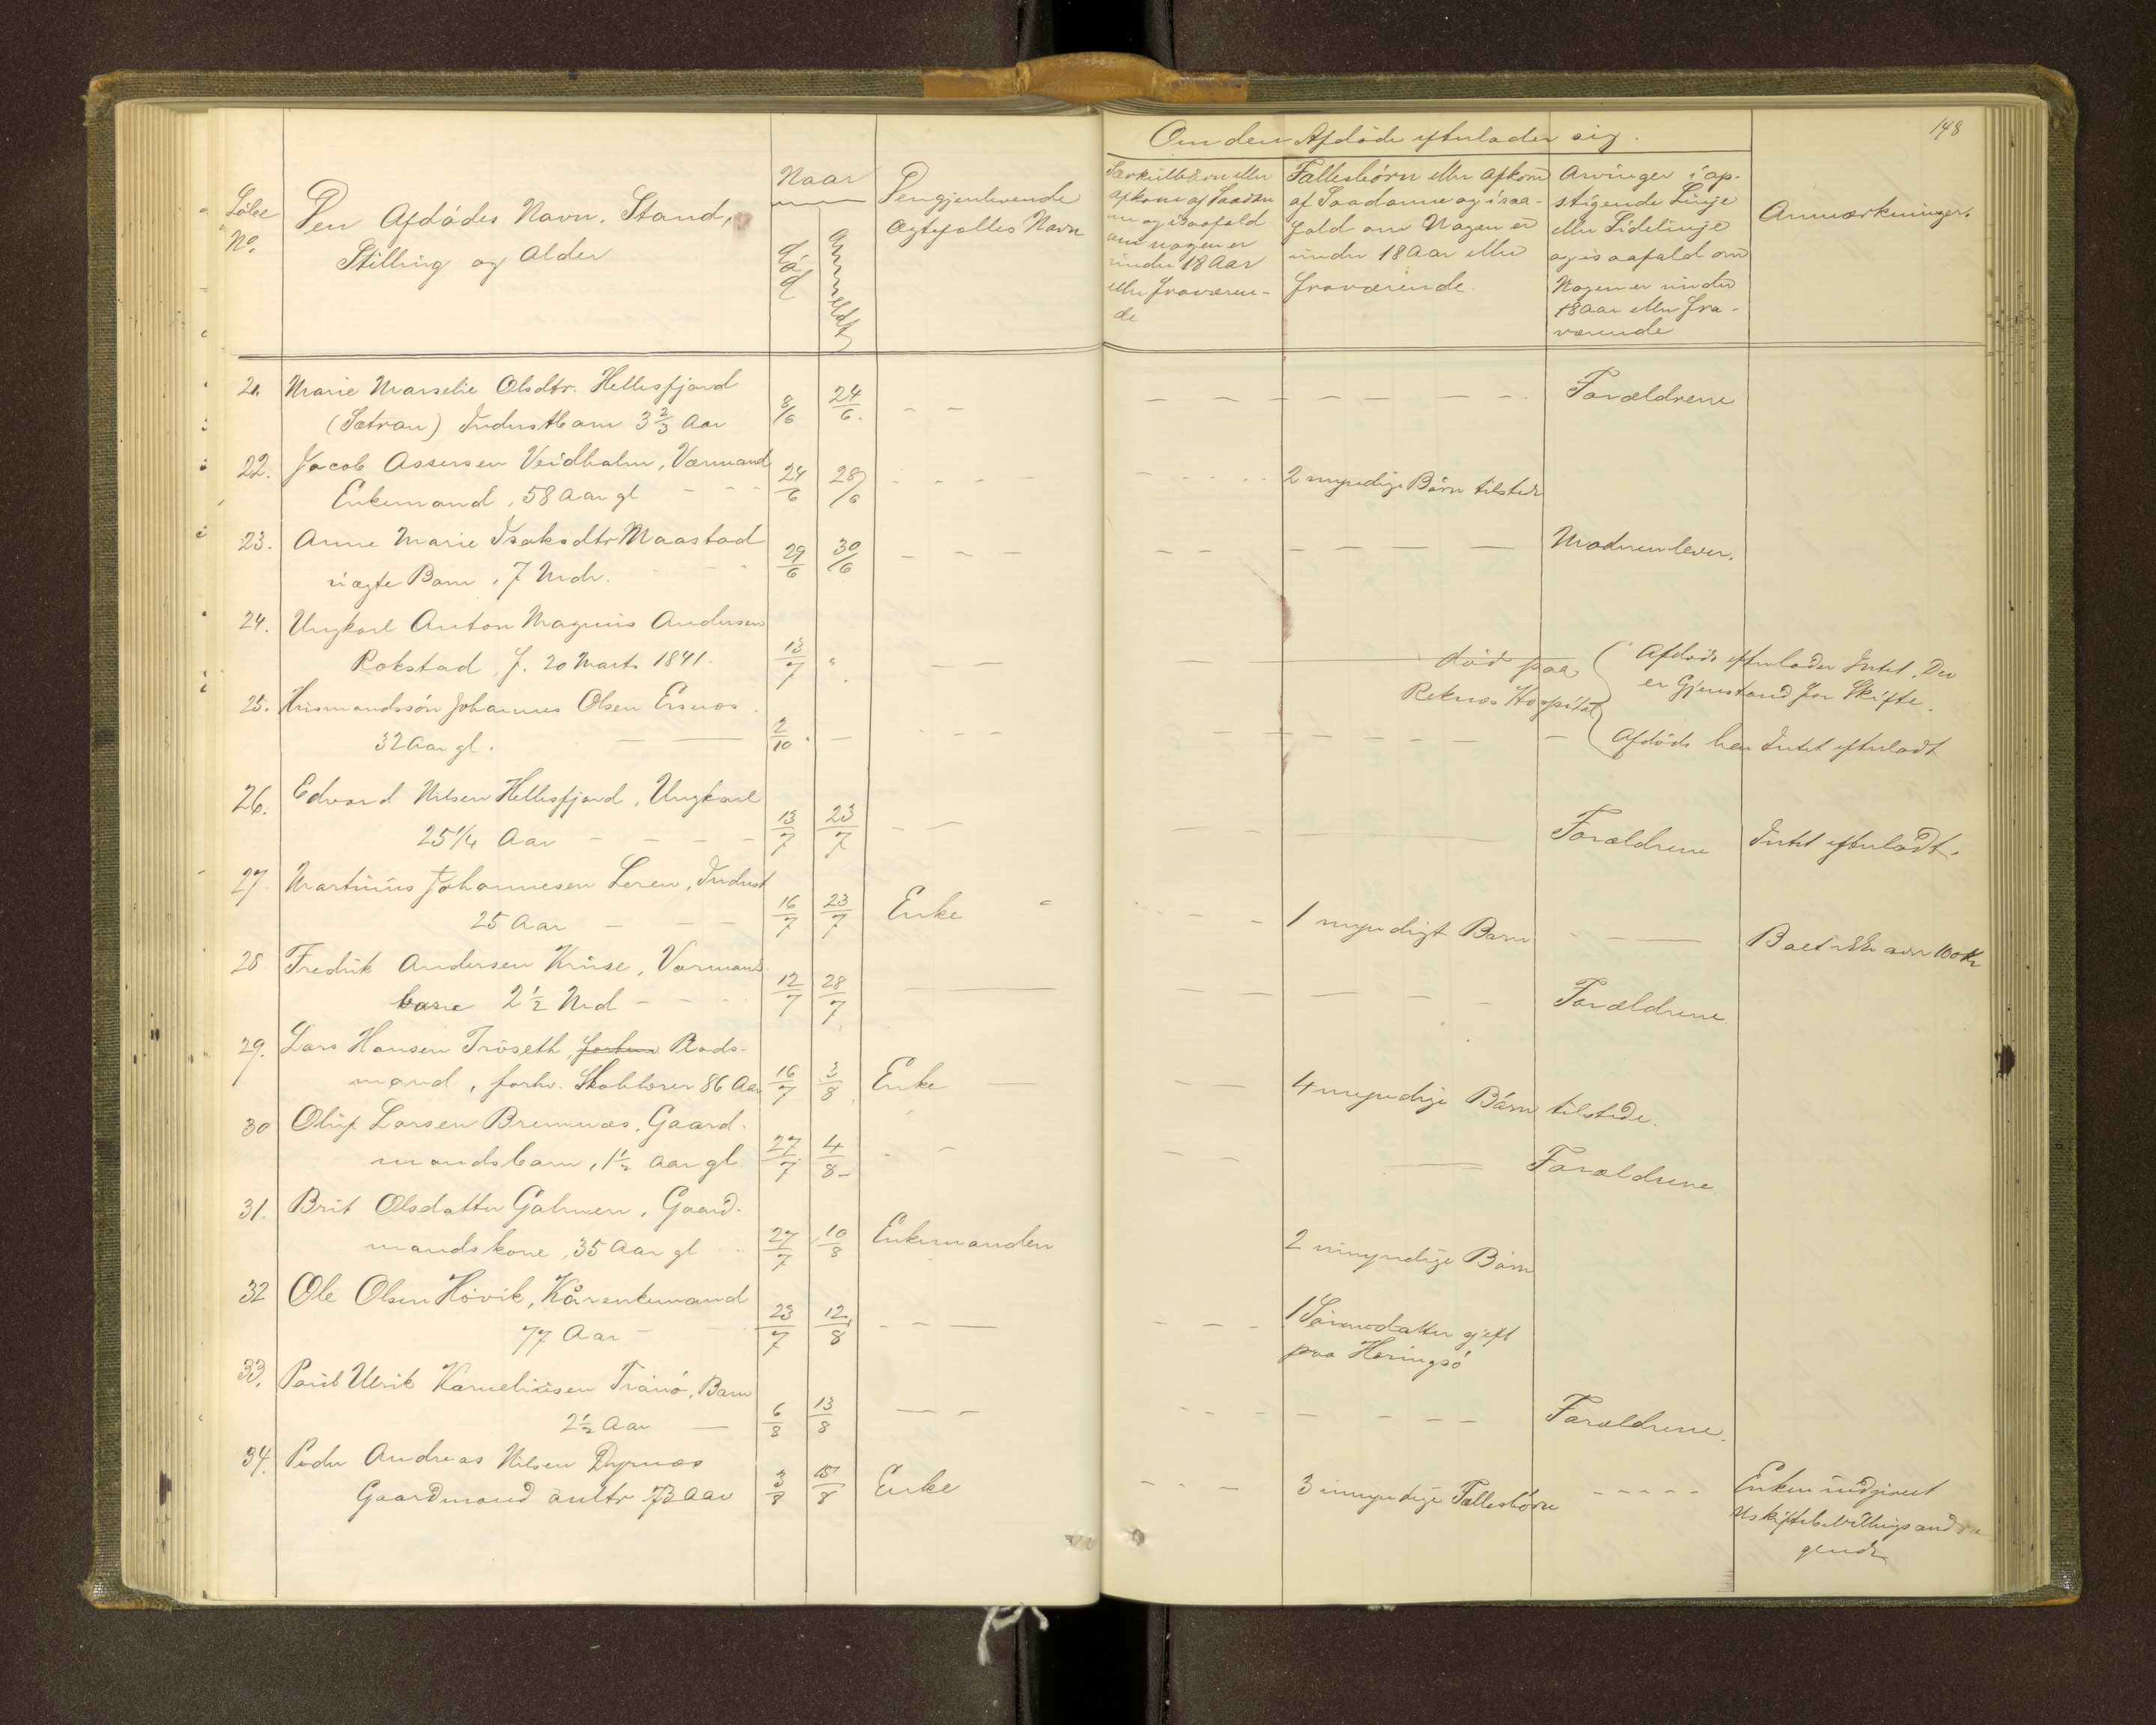 148
Om den Afdöde efterlader sig.
Löbe No.
Den Afdödes Navn, Stand,
Stilling og Alder
Naar
död
Anmeldt
Den gjenlevende
Ægtefælles Navn
Særkuldbörn eller
Afkom af Saadan
ne og isaafald
om nogen er
under 18 Aar
eller fraværen-
de
Fællesbörn eller Afkom
af Saadanne og i saa-
fald om Nogen er
under 18 Aar eller
fraværende.
Arvinger i op-
stigende Linje
eller Sidelinje
og isaafald om
Nogen er under
18 Aar eller fra-
værende
Anmærkninger.
21. Marie Marselie Olsdtr. Hellesfjord 8/6 24/6. - - - - - Forældrene
(Sætran) Inderstbarn 3 2/3 Aar
22. Jacob Assersen Veidholm, Værmand 24/6 28/6 - - - - 2 myndige Börn tilstede
Enkemand, 58 Aar gl - - -
23. Anne Marie Isaksdtr Maastad 29/6 30/6 - - - - Moderen lever.
uægte Barn, 7 Mdr.
24. Ungkarl Anton Magnus Andersen
Rokstad, f. 20 Marts 1841. 13/7 " - - död paa Afdöde efterlader Intet, Der
Reknes Hospital er Gjenstand for Skifte.
25. Husmandssön Johannes Olsen Ersnes
32 Aar gl. 2/10 " - - - - Afdöde har Intet efterladt
26. Edvard Nilsen Hellesfjord, Ungkarl
25 1/4 Aar - - - 13/7 23/7 - - - Forældrene Intet efterladt.
27. Martinus Johannesen Leren, Inderst
25 Aar - - - 16/7 23/7 Enke " - - 1 myndigt Barn - - Boet ikke over 100 Kr
28. Fredrik Andersen Kruse, Værmands
barn 2 1/2 Md - - 12/7 28/7 - - - - Forældrene
29. Lars Hansen Tröseth, forhen Plads-
mand, forhv. Skolelærer 86 Aar 16/7 3/8 Enke - - 4 myndige Börn tilstede.
30 Oluf Larsen Bremnes, Gaard-
mandsbarn, 1 1/2 Aar gl 27/7 4/8 - - - Forældrene.
31. Brit Olsdatter Gahmen, Gaard-
mandskone, 35 Aar gl 27/7 10/8 Enkemanden 2 umyndige Börn
32 Ole Olsen Hövik, Kårenkemand 1 Sönnedatter gift
77 Aar - 23/7 12/8 - - - paa Heringsö
33. Paul Ulrik Korneliusen Tranö, Barn
2 1/2 Aar - 6/8 13/8 - - - - Forældrene.
34. Peder Andreas Nilsen Dyrnes
Gaardmand 73 Aar 3/8 15/8 Enke - - - 3 umyndige Fællesbörn - - - - - Enken indgivet
Uskiftebevillingsandra
gende